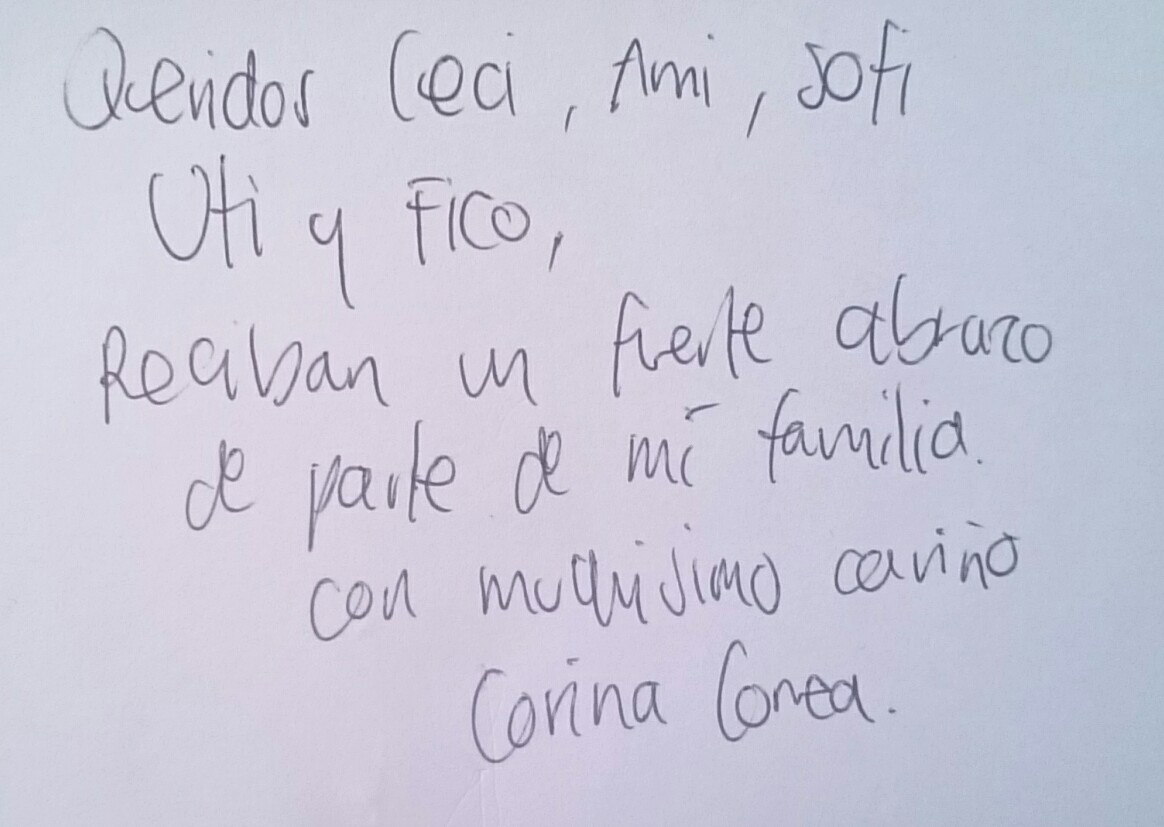 Queridos Ceci, Ami, Sofi
Uti y Fico,
Reciban un fuerte abrazo
de parte de mi familia.
con muchisimo cariño
Corina Correa.